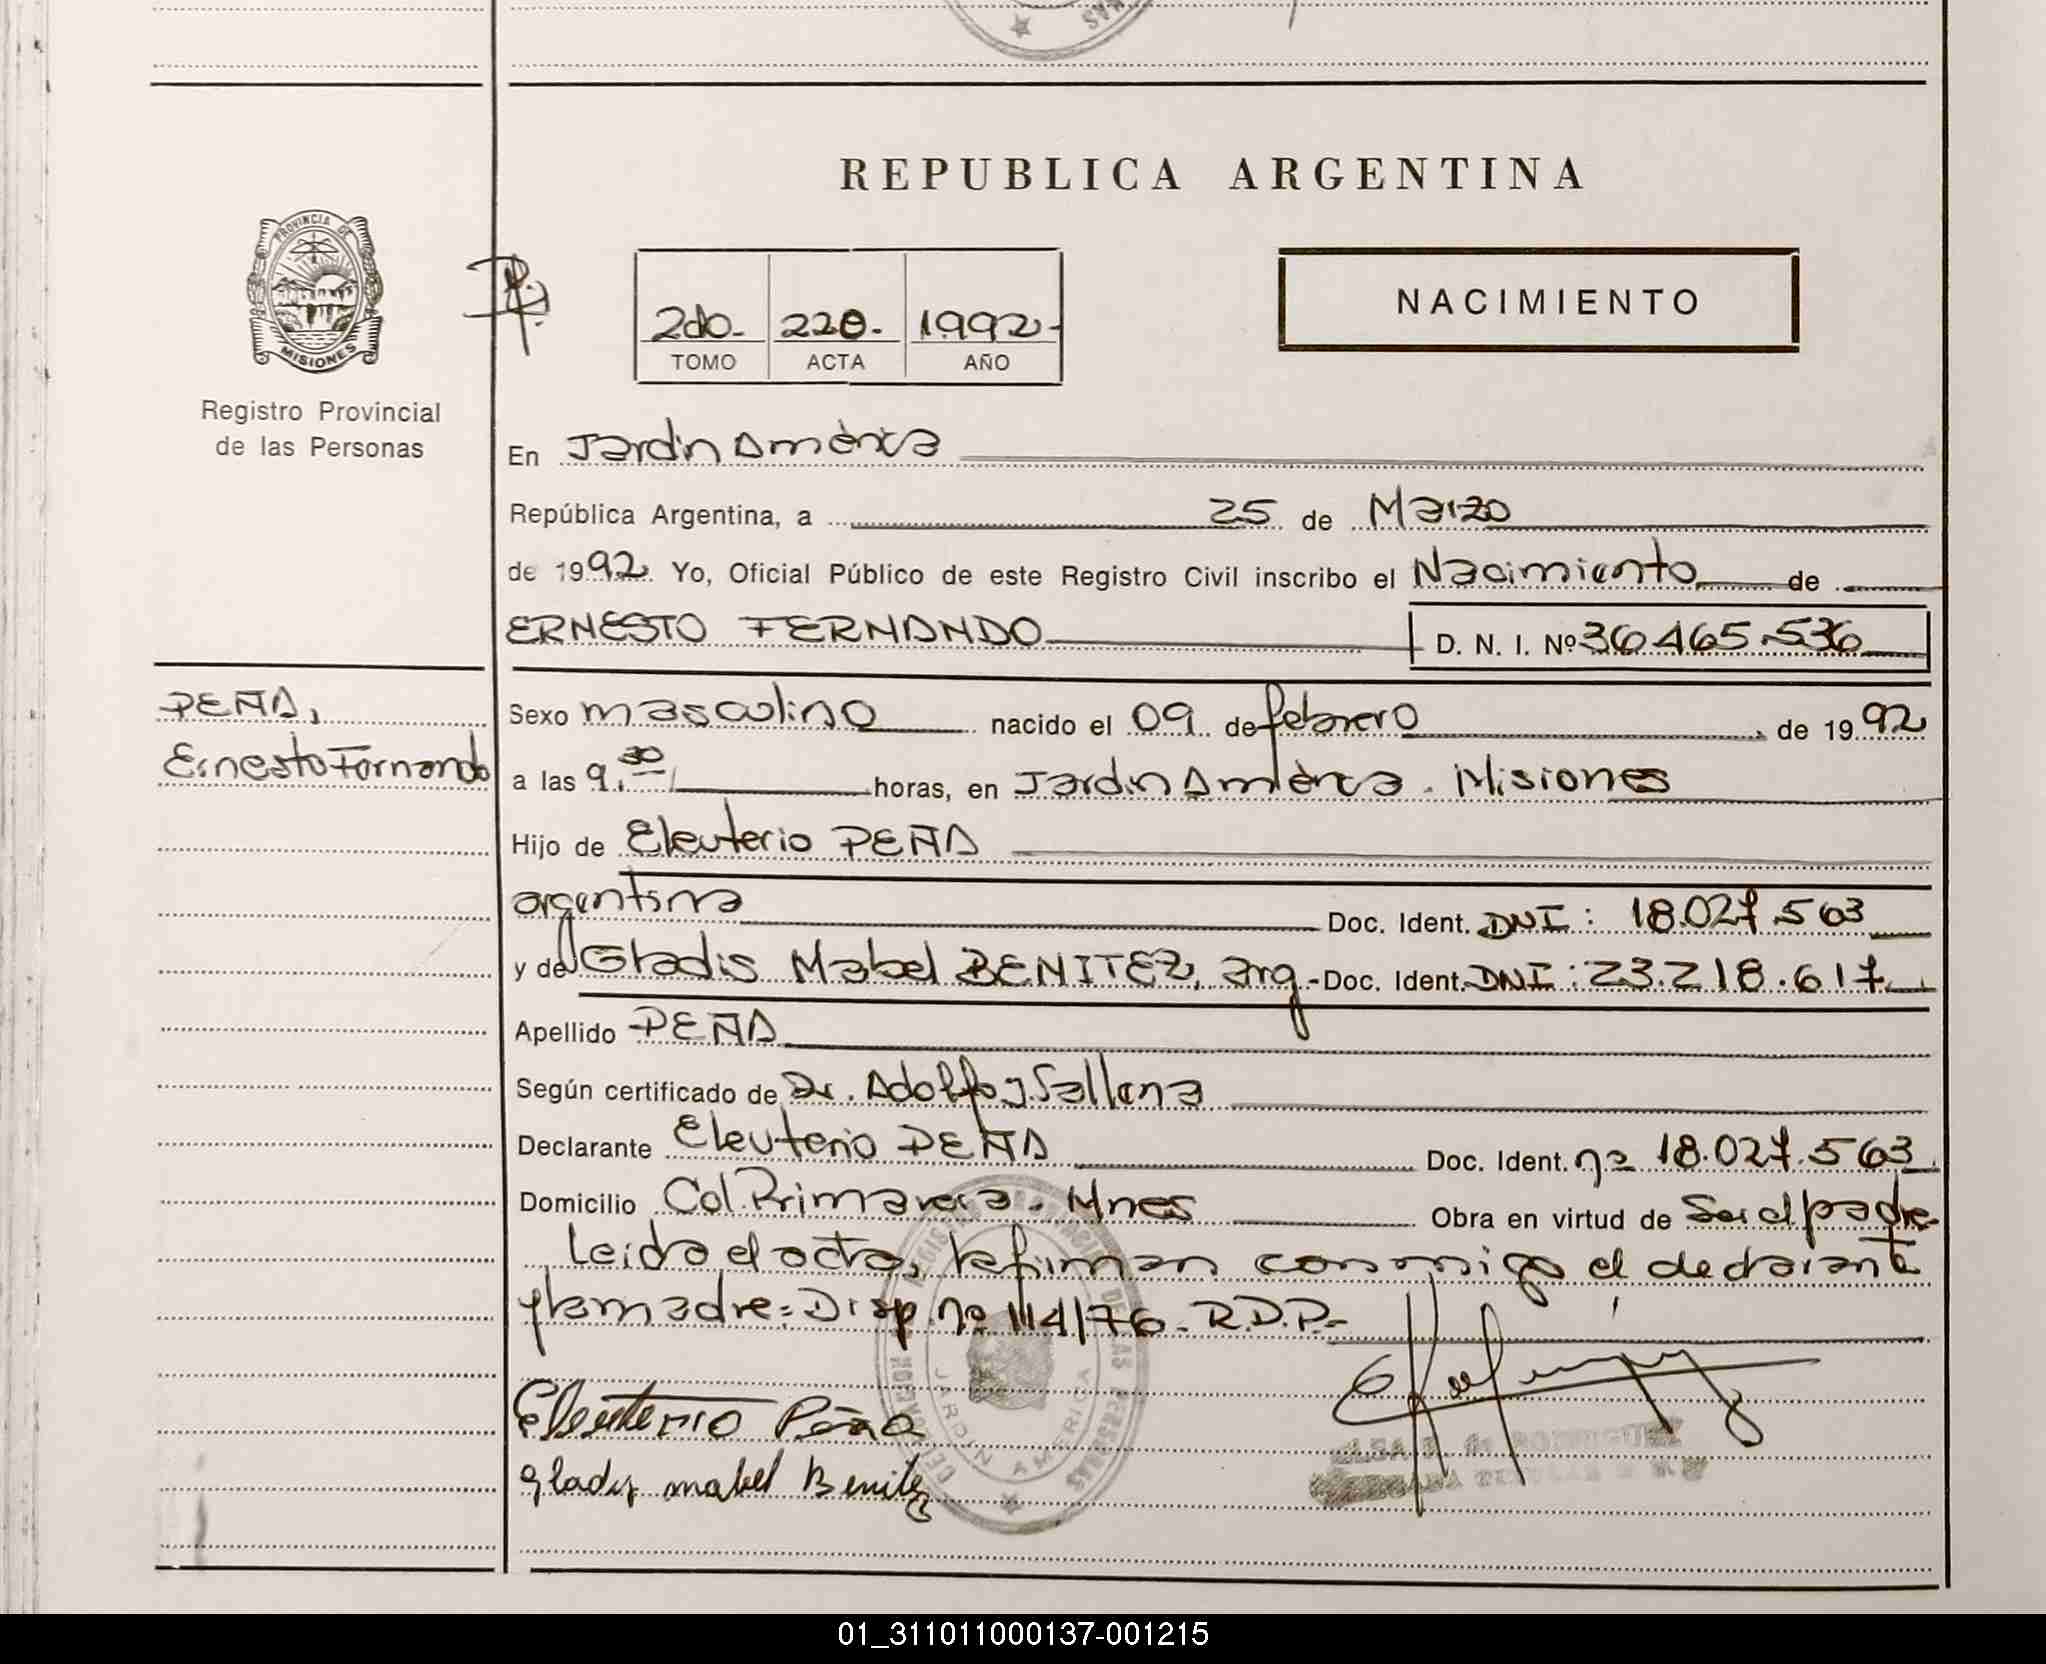 REPUBLICA ARGENTINA
PROVINCIA DE
MISIONES
Registro Provincial
de las Personas
2do.- 220.- 1992.-
TOMO ACTA AÑO
NACIMIENTO
En Jardín América
República Argentina, a 25 de Marzo
de 1992 Yo, Oficial Público de este Registro Civil inscribo el Nacimiento de
ERNESTO FERNANDO D. N. I. Nº 36.465.536
PEÑA,
Ernesto Fernando
Sexo masculino nacido el 09 de febrero de 1992
a las 9.30 horas, en Jardín América . Misiones
Hijo de Eleuterio PEÑA
argentina Doc. Ident. DNI: 18.027.563
y de Gladis Mabel BENITEZ, arg.- Doc. Ident. DNI: 23.218.617
Apellido PEÑA
Según certificado de Dr. Adolfo J. Sallena
Declarante Eleuterio PEÑA Doc. Ident. nº 18.027.563
Domicilio Col. Primavera. Mnes Obra en virtud de Ser el padre
Leída el acta, la firman conmigo el declarante
y la madre: Disp. nº 114/76. R.D.P.-
Eleuterio Peña
JARDIN AMERICA
Gladys mabel Benitez
01_311011000137-001215